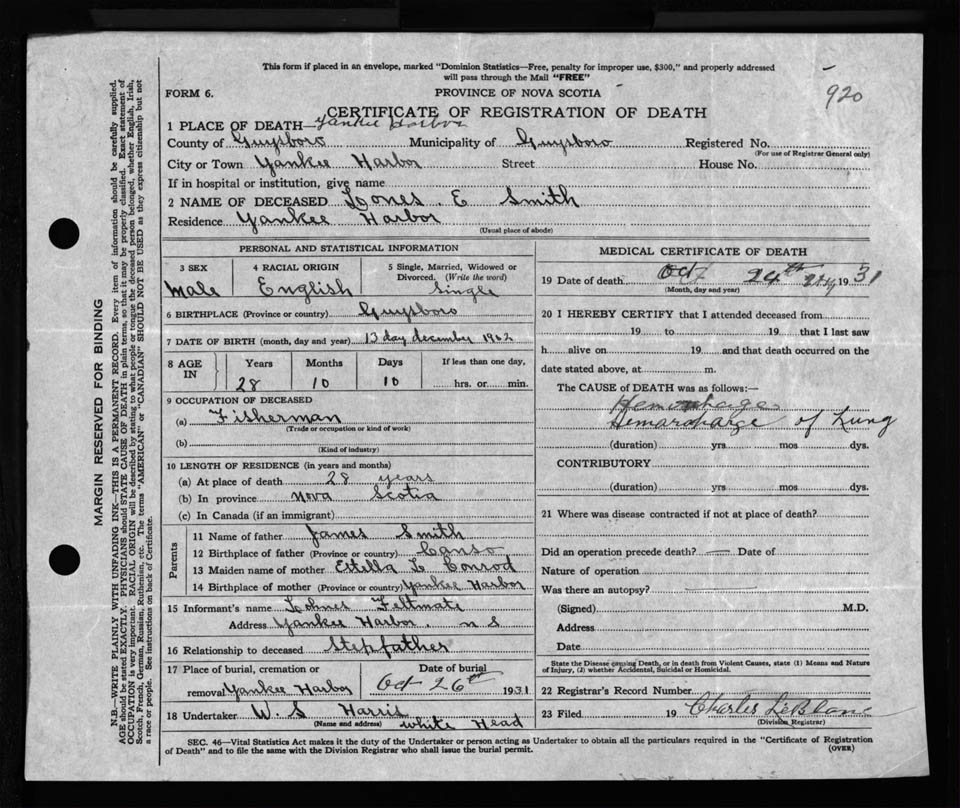 This form if placed in an envelope, marked "Dominion Statistics—Free, penalty for improper use, $300," and properly addressed
will pass through the Mail "FREE"
920
FORM 6. PROVINCE OF NOVA SCOTIA
CERTIFICATE OF REGISTRATION OF DEATH
1 PLACE OF DEATH—Yankee Harbor
County of Guysboro Municipality of Guysboro Registered No.
(For use of Registrar General only)
City or Town Yankee Harbor Street House No.
If in hospital or institution, give name
2 NAME OF DECEASED E Smith
Residence Yankee Harbor
(Usual place of abode)
PERSONAL AND STATISTICAL INFORMATION
3 SEX 4 RACIAL ORIGIN 5 Single, Married, Widowed or
Divorced. (Write the word)
Male English Single
6 BIRTHPLACE (Province or country) Guysboro
7 DATE OF BIRTH (month, day and year) 13 day december 1902
8 AGE IN Years Months Days If less than one day,
28 10 10 hrs. or min.
9 OCCUPATION OF DECEASED
(a) Fisherman
(Trade or occupation or kind of work)
(b)
(Kind of industry)
10 LENGTH OF RESIDENCE (in years and months)
(a) At place of death 28 years
(b) In province Nova Scotia
(c) In Canada (if an immigrant)
Parents
11 Name of father James Smith
12 Birthplace of father (Province or country) Canso
13 Maiden name of mother Estella L Conrod
14 Birthplace of mother (Province or country) Yankee Harbor
15 Informant's name Feltmate
Address Yankee Harbor. n s
16 Relationship to deceased Stepfather
17 Place of burial, cremation or Date of burial
removal Yankee Harbor Oct 26th 1931
18 Undertaker W. S Harris
(Name and address) White Head
MEDICAL CERTIFICATE OF DEATH
19 Date of death Oct 24th 24 1931
(Month, day and year)
20 I HEREBY CERTIFY that I attended deceased from
19 to 19 that I last saw
h alive on 19 and that death occurred on the
date stated above, at m.
The CAUSE of DEATH was as follows:—
Hemorhage
Hemarcharge of Lung
(duration) yrs mos dys.
CONTRIBUTORY
(duration) yrs mos dys.
21 Where was disease contracted if not at place of death?
Did an operation precede death? — Date of
Nature of operation
Was there an autopsy?
(Signed) M.D.
Address
Date
State the Disease causing Death, or in death from Violent Causes, state (1) Means and Nature
of Injury, (2) whether Accidental, Suicidal or Homicidal.
22 Registrar's Record Number
23 Filed 19 Charles LeBlanc
(Division Registrar)
SEC. 46—Vital Statistics Act makes it the duty of the Undertaker or person acting as Undertaker to obtain all the particulars required in the "Certificate of Registration
of Death" and to file the same with the Division Registrar who shall issue the burial permit. (OVER)
MARGIN RESERVED FOR BINDING
N.B.—WRITE PLAINLY WITH UNFADING INK—THIS IS A PERMANENT RECORD. Every item of information should be carefully supplied.
AGE should be stated EXACTLY. PHYSICIANS should STATE CAUSE OF DEATH in plain terms, so that it may be properly classified. Exact statement of
OCCUPATION is very important. RACIAL ORIGIN will be described by stating to what people or tongue the deceased person belonged, whether English, Irish,
Scotch, French, German, Russian, Ruthenian, etc. The terms "AMERICAN" or "CANADIAN" SHOULD NOT BE USED as they express citizenship but not
a race or people. See instructions on back of Certificate.